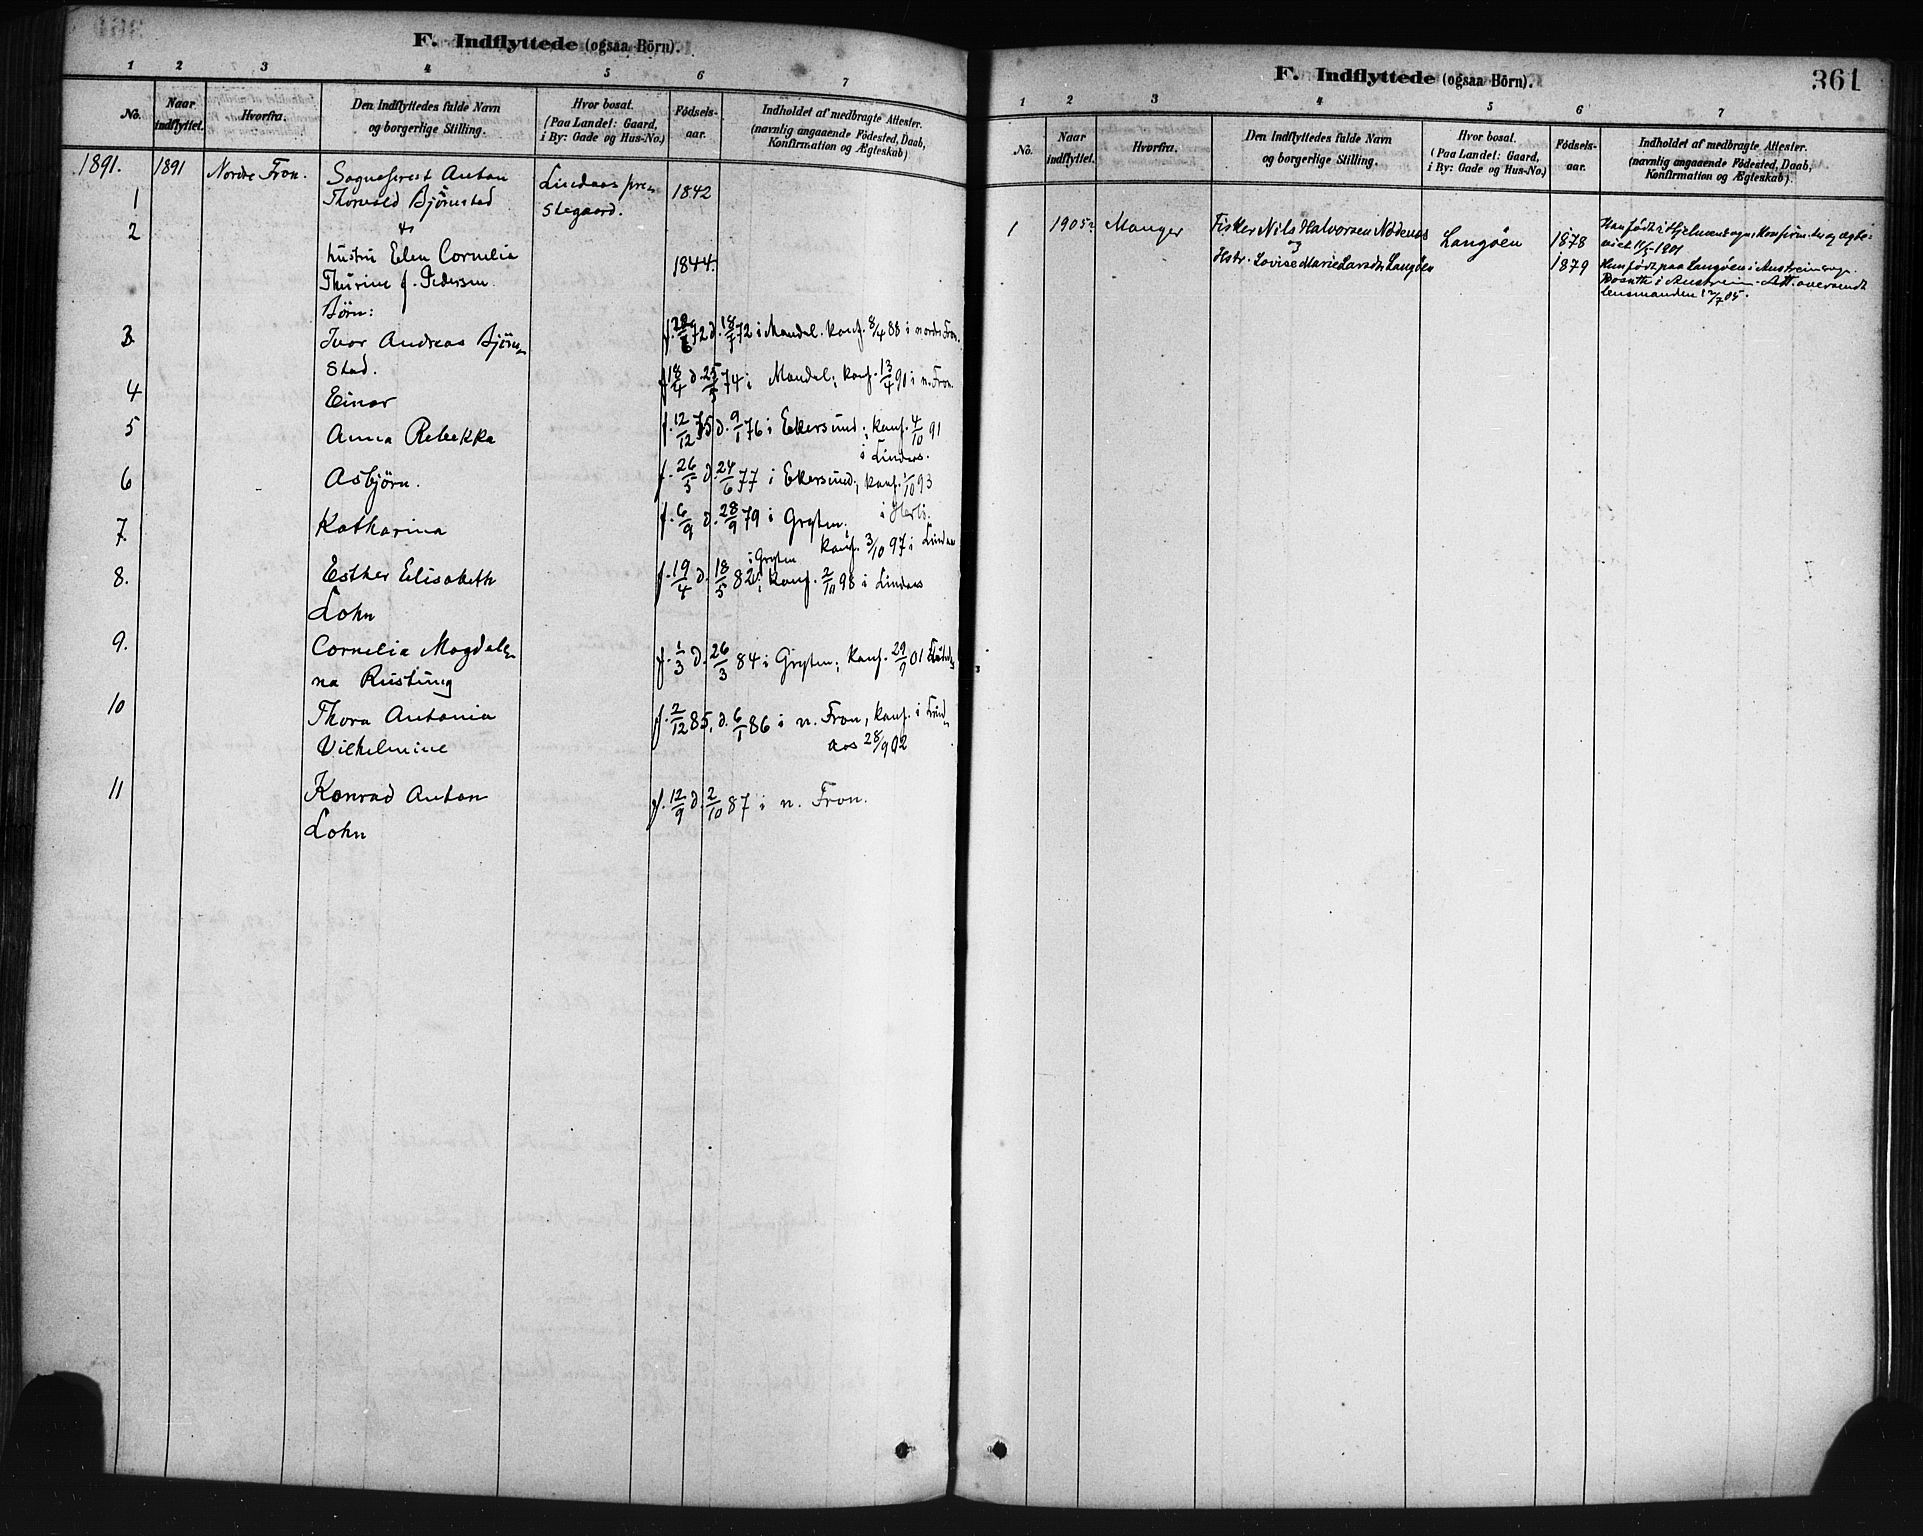 F. Indflyttede (ogsaa Börn).
1 2 3 4 5 6 7
No.
Naar indflyttet.
Hvorfra.
Den Indflyttedes fulde Navn
og borgerlige Stilling.
Hvor bosat.
(Paa Landet: Gaard,
i By: Gade og Hus-No.)
Födsels-
aar.
Indholdet af medbragte Attester.
(navnlig angaaende Födested, Daab,
Konfirmation og Ægteskab)
1891. 1891 Nordre Fron. Sogneprest Anton Lindaas pre-
1 Thorvald Bjørnstad stegaard. 1842
2 &
hustru Elen Cornelia
Thurine f. Pedersen 1844.
Børn:
3. Ivar Andreas Bjørn- f. 28/6 72 d. 18/7 72 i Mandal. konf. 8/4 88 i nordre Fron.
stad.
4 Einar f. 18/4 d. 25/5 74 i Mandal; konf. 13/4 90 i n. Fron.
5 Anna Rebekka f. 12/12 75 d. 9/1 76 i Ekersund; konf. 4/10 91
i Lindaas.
6 Asbjørn. f. 26/5 d. 24/6 77 i Ekersund; konf. 1/10 93
i Herlø.
7. Katharina f. 6/9 d. 28/9 79 i Gryten;
konf. 3/10 97 i Lindaas
8. Esther Elisabeth f. 19/4 d. 18/5 82 i Gryten; konf. 2/10 98 i Lindaas
Lohn
9. Cornelia Magdale- f. 1/3 d. 26/3 84 i Gryten; konf. 29/9 01
na Rustung
10 Thora Antonia f. 2/12 85, d. 6/1 86 i n. Fron, konf. i Lind-
Vilhelmine aas 28/9 02
11 Konrad Anton f. 12/9 d. 2/10 87 i n. Fron.
Lohn
F. Indflyttede (ogsaa Börn).
361
1 2 3 4 5 6 7
No.
Naar
indflyttet.
Hvorfra.
Den Indflyttedes fulde Navn
og borgerlige Stilling.
Hvor bosat.
(Paa Landet: Gaard,
i By: Gade og Hus-No.)
Födsels-
aar.
Indholdet af medbragte Attester.
(navnlig angaaende Födested, Daab,
Konfirmation og Ægteskab)
1 1905 Manger Fisker Nils Halvorsen Nødenes Langøen 1878 Han født i Hjelmensogn, Konfirm. der og ægte-
og viet 11/5 1901
Hstr. Lovise Marie Larsdr Langøen 1879 Hun født paa Langøen i Austreimsogn.
i Austreim - Att. oversendt
Lensmanden 12/7 05.